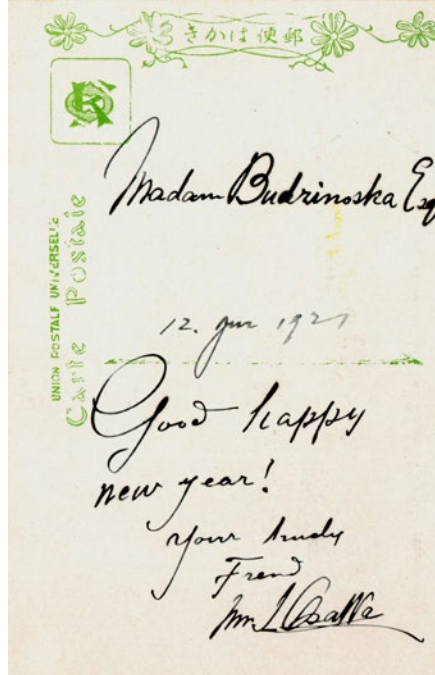 きかは便郵
UNION POSTALE UNIVERSELLE
Carte Postale
Madam Budrinoska Esq
12. jan 1921
Good happy
new year!
your truly
Frend